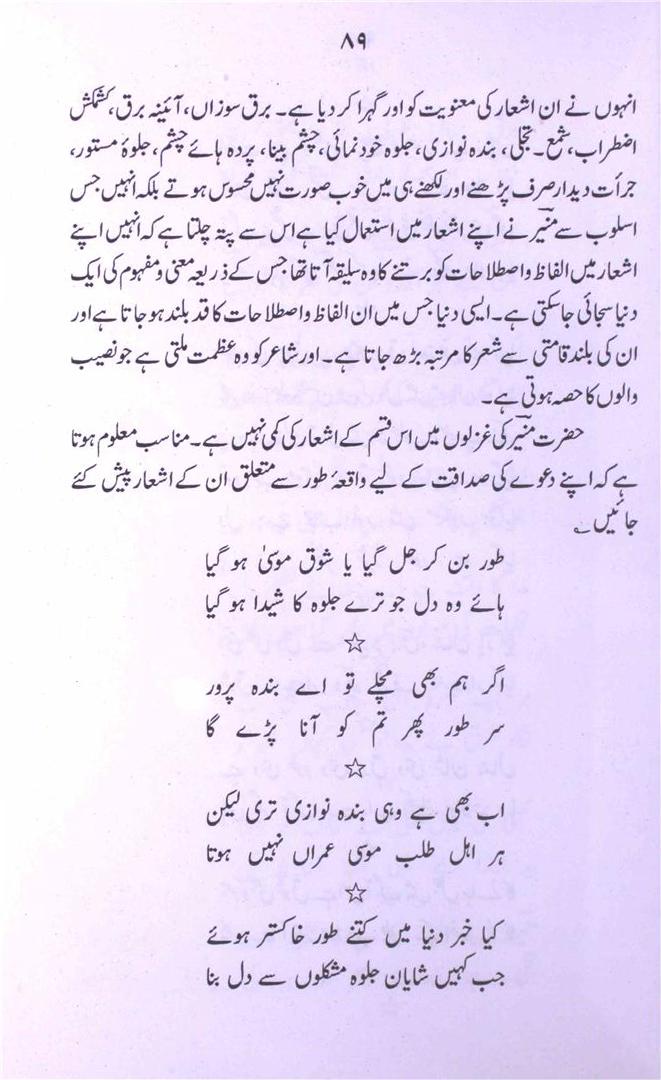 ۸۹
انہوں نے ان اشعار کی معنویت کو اور گہرا کر دیا ہے۔ برق سوزاں، آئینہ برق، کشمکش
اضطراب، شمع۔ تجلی، بندہ نوازی، جلوہ خود نمائی، چشم بینا، پردہ ہائے چشم، جلوۂ مستور،
جرأت دیدار صرف پڑھنے اور لکھنے ہی میں خوب صورت نہیں محسوس ہوتے بلکہ انہیں جس
اسلوب سے منیر نے اپنے اشعار میں استعمال کیا ہے اس سے پتہ چلتا ہے کہ انہیں اپنے
اشعار میں الفاظ و اصطلاحات کو برتنے کا وہ سلیقہ آتا تھا جس کے ذریعہ معنی و مفہوم کی ایک
دنیا سجائی جاسکتی ہے۔ ایسی دنیا جس میں ان الفاظ و اصطلاحات کا قد بلند ہو جاتا ہے اور
ان کی بلند قامتی سے شعر کا مرتبہ بڑھ جاتا ہے۔ اور شاعر کو وہ عظمت ملتی ہے جو نصیب
والوں کا حصہ ہوتی ہے۔
حضرت منیر کی غزلوں میں اس قسم کے اشعار کی کمی نہیں ہے۔ مناسب معلوم ہوتا
ہے کہ اپنے دعوے کی صداقت کے لیے واقعۂ طور سے متعلق ان کے اشعار پیش کئے
جائیں ؎
طور بن کر جل گیا یا شوق موسیٰ ہو گیا
ہائے وہ دل جو ترے جلوہ کا شیدا ہو گیا
☆
اگر ہم بھی مچلے تو اے بندہ پرور
سر طور پھر تم کو آنا پڑے گا
☆
اب بھی ہے وہی بندہ نوازی تری لیکن
ہر اہل طلب موسی عمراں نہیں ہوتا
☆
کیا خبر دنیا میں کتنے طور خاکستر ہوئے
جب کہیں شایان جلوہ مشکلوں سے دل بنا